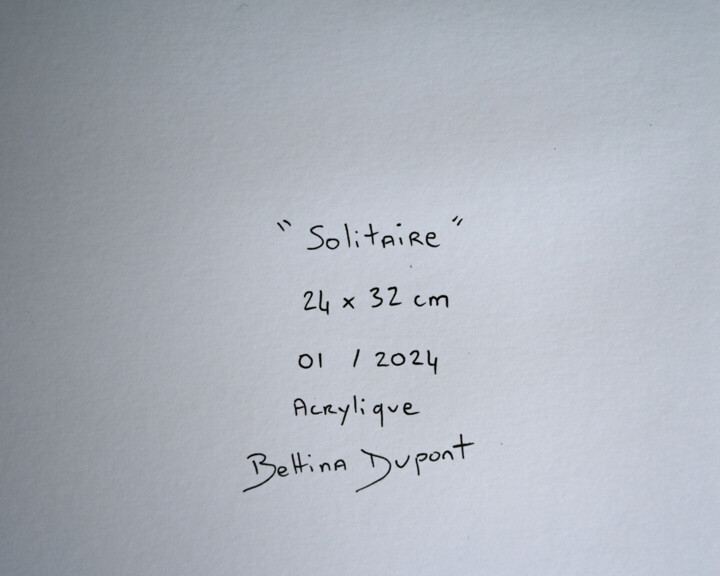 "Solitaire"
24 x 32 cm
01 / 2024
Acrylique
Bettina Dupont